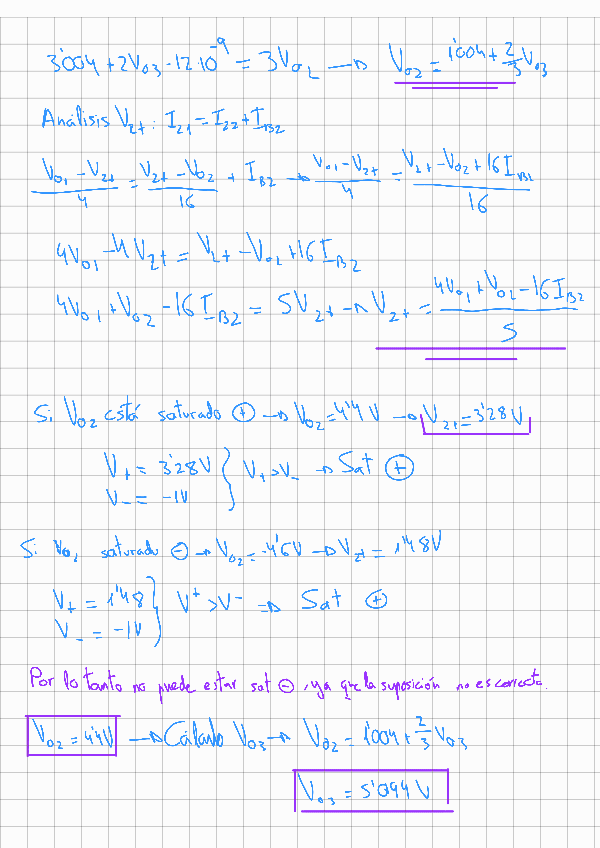 3'004 + 2V₀₃ - 12·10⁻⁹ = 3V₀₂ → V₀₂ = 1'004 + 2/3 V₀₃
Análisis V₂₊: I₂₁ = I₂₂ + I_B2
(V₀₁ - V₂₊)/4 = (V₂₊ - V₀₂)/16 + I_B2 → (V₀₁ - V₂₊)/4 = (V₂₊ - V₀₂ + 16 I_B2)/16
4V₀₁ - 4V₂₊ = V₂₊ - V₀₂ + 16 I_B2
4V₀₁ + V₀₂ - 16 I_B2 = 5V₂₊ → V₂₊ = (4V₀₁ + V₀₂ - 16 I_B2)/5
Si V₀₂ está saturado ⊕ → V₀₂ = 4'4 V → V₂₊ = 3'28 V
V₊ = 3'28 V } V₊ > V₋ → Sat ⊕
V₋ = -1V
Si V₀₂ saturado ⊖ → V₀₂ = -4'6V → V₂₊ = 1'48V
V₊ = 1'48 } V⁺ > V⁻ → Sat ⊕
V₋ = -1V
Por lo tanto no puede estar sat ⊖, ya que la suposición no es correcta.
V₀₂ = 4'4V → Cálculo V₀₃ → V₀₂ = 1'004 + 2/3 V₀₃
V₀₃ = 5'094 V